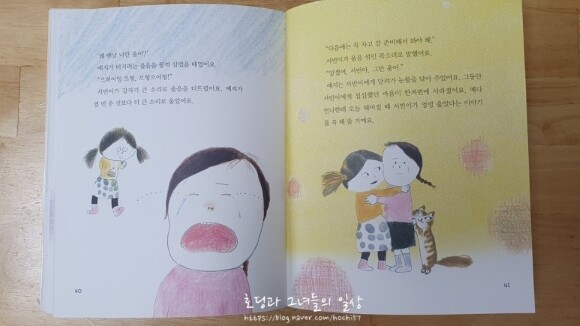 "왜 맨날 나만 울어?"
예지가 터지려는 울음을 꿀꺽 삼켰을 때였어요.
서빈이가 갑자기 큰 소리로 울음을 터뜨렸어요. 예지가
열 번 운 것보다 더 큰 소리로 울었어요.
40
"다음에는 꼭 자고 갈 준비해서 와야 해."
서빈이가 울음 섞인 목소리로 말했어요.
"알겠어, 서빈아. 그만 울어."
예지는 서빈이에게 달려가 눈물을 닦아 주었어요. 그동안
서빈이에게 섭섭했던 마음이 한꺼번에 사라졌어요.
언니한테 오늘 헤어질 때 서빈이가 엉엉 울었다는 이야기
를 꼭 해 줄 거예요.
41
호딩과 그녀들의 일상
https://blog.naver.com/hochi37